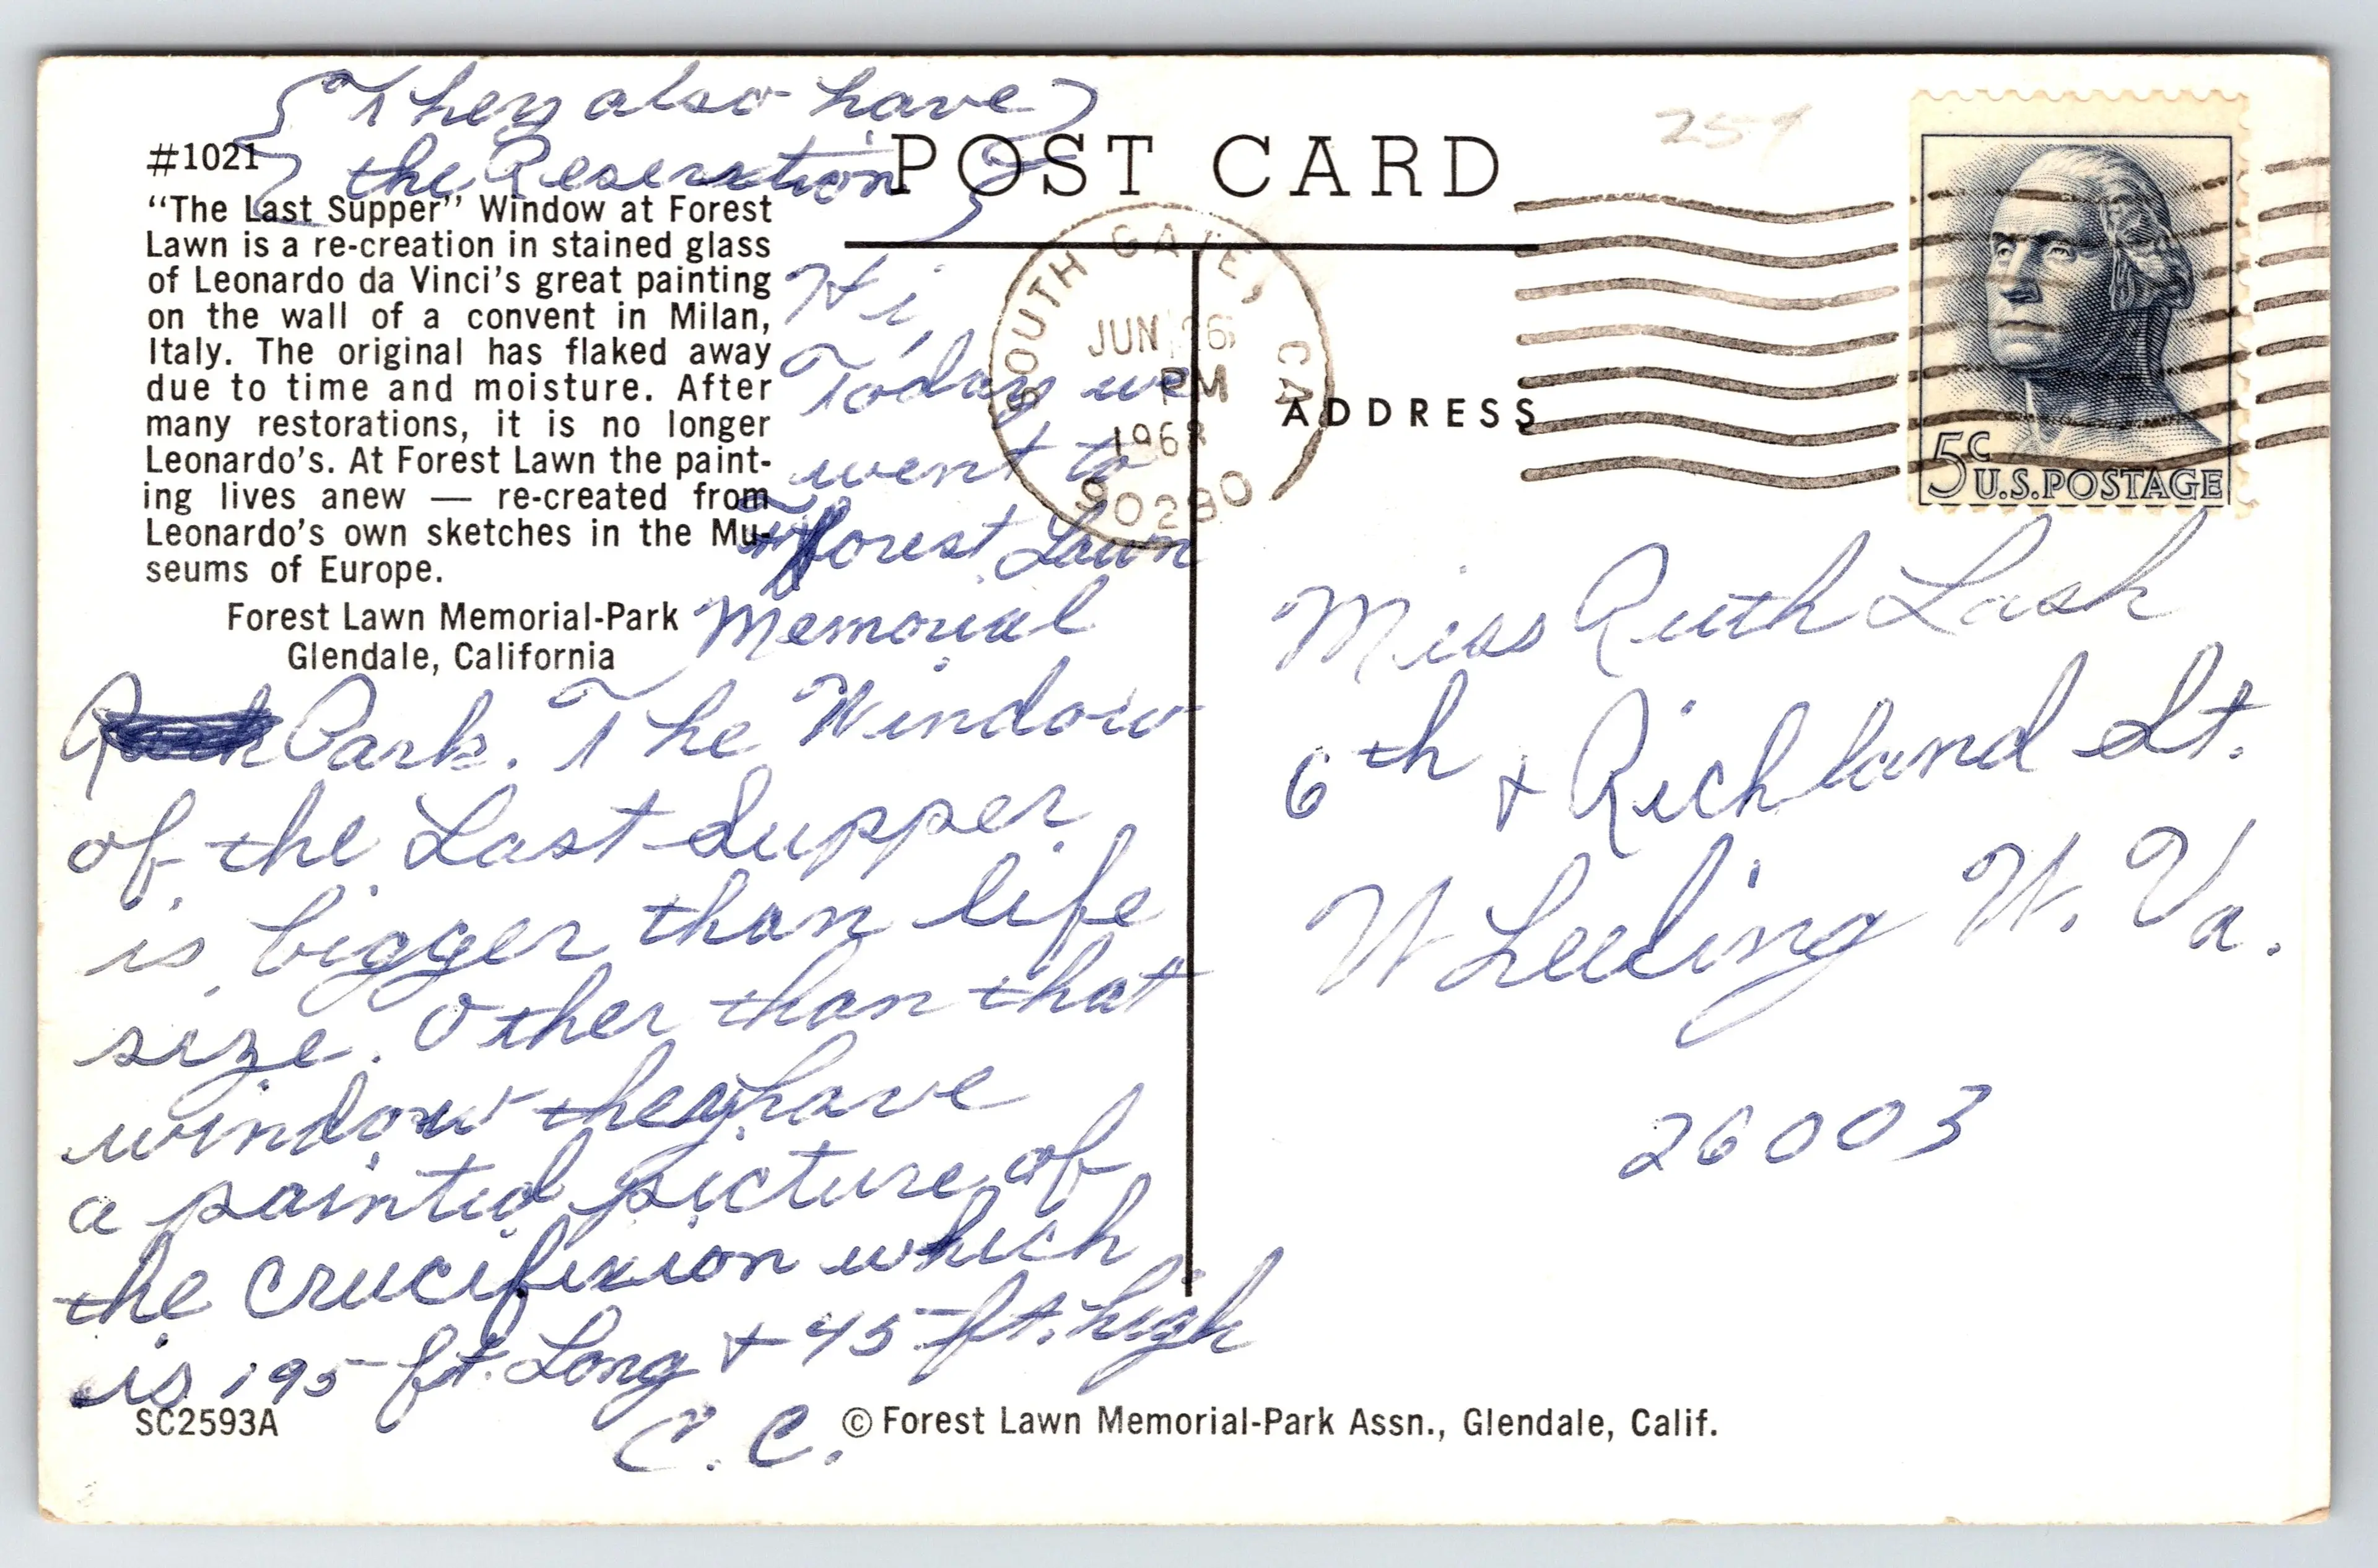 {They also have}
{the Reserection}
POST CARD
25¢
#1021
"The Last Supper" Window at Forest
Lawn is a re-creation in stained glass
of Leonardo da Vinci's great painting
on the wall of a convent in Milan,
Italy. The original has flaked away
due to time and moisture. After
many restorations, it is no longer
Leonardo's. At Forest Lawn the paint-
ing lives anew — re-created from
Leonardo's own sketches in the Mu-
seums of Europe.
Forest Lawn Memorial-Park
Glendale, California
Hi,
Today we
went to
Forest Lawn
Memorial
Park. The Window
of the Last Supper
is bigger than life
size. Other than that
window they have
a painted picture of
the crucifixion which
is 195 ft. Long & 45 ft. high
C. C.
SC2593A
© Forest Lawn Memorial-Park Assn., Glendale, Calif.
SOUTH GATE, CA
JUN 26
PM
1968
90280
ADDRESS
5c
U.S. POSTAGE
Miss Ruth Lash
6th & Richland St.
Wheeling W. Va.
26003